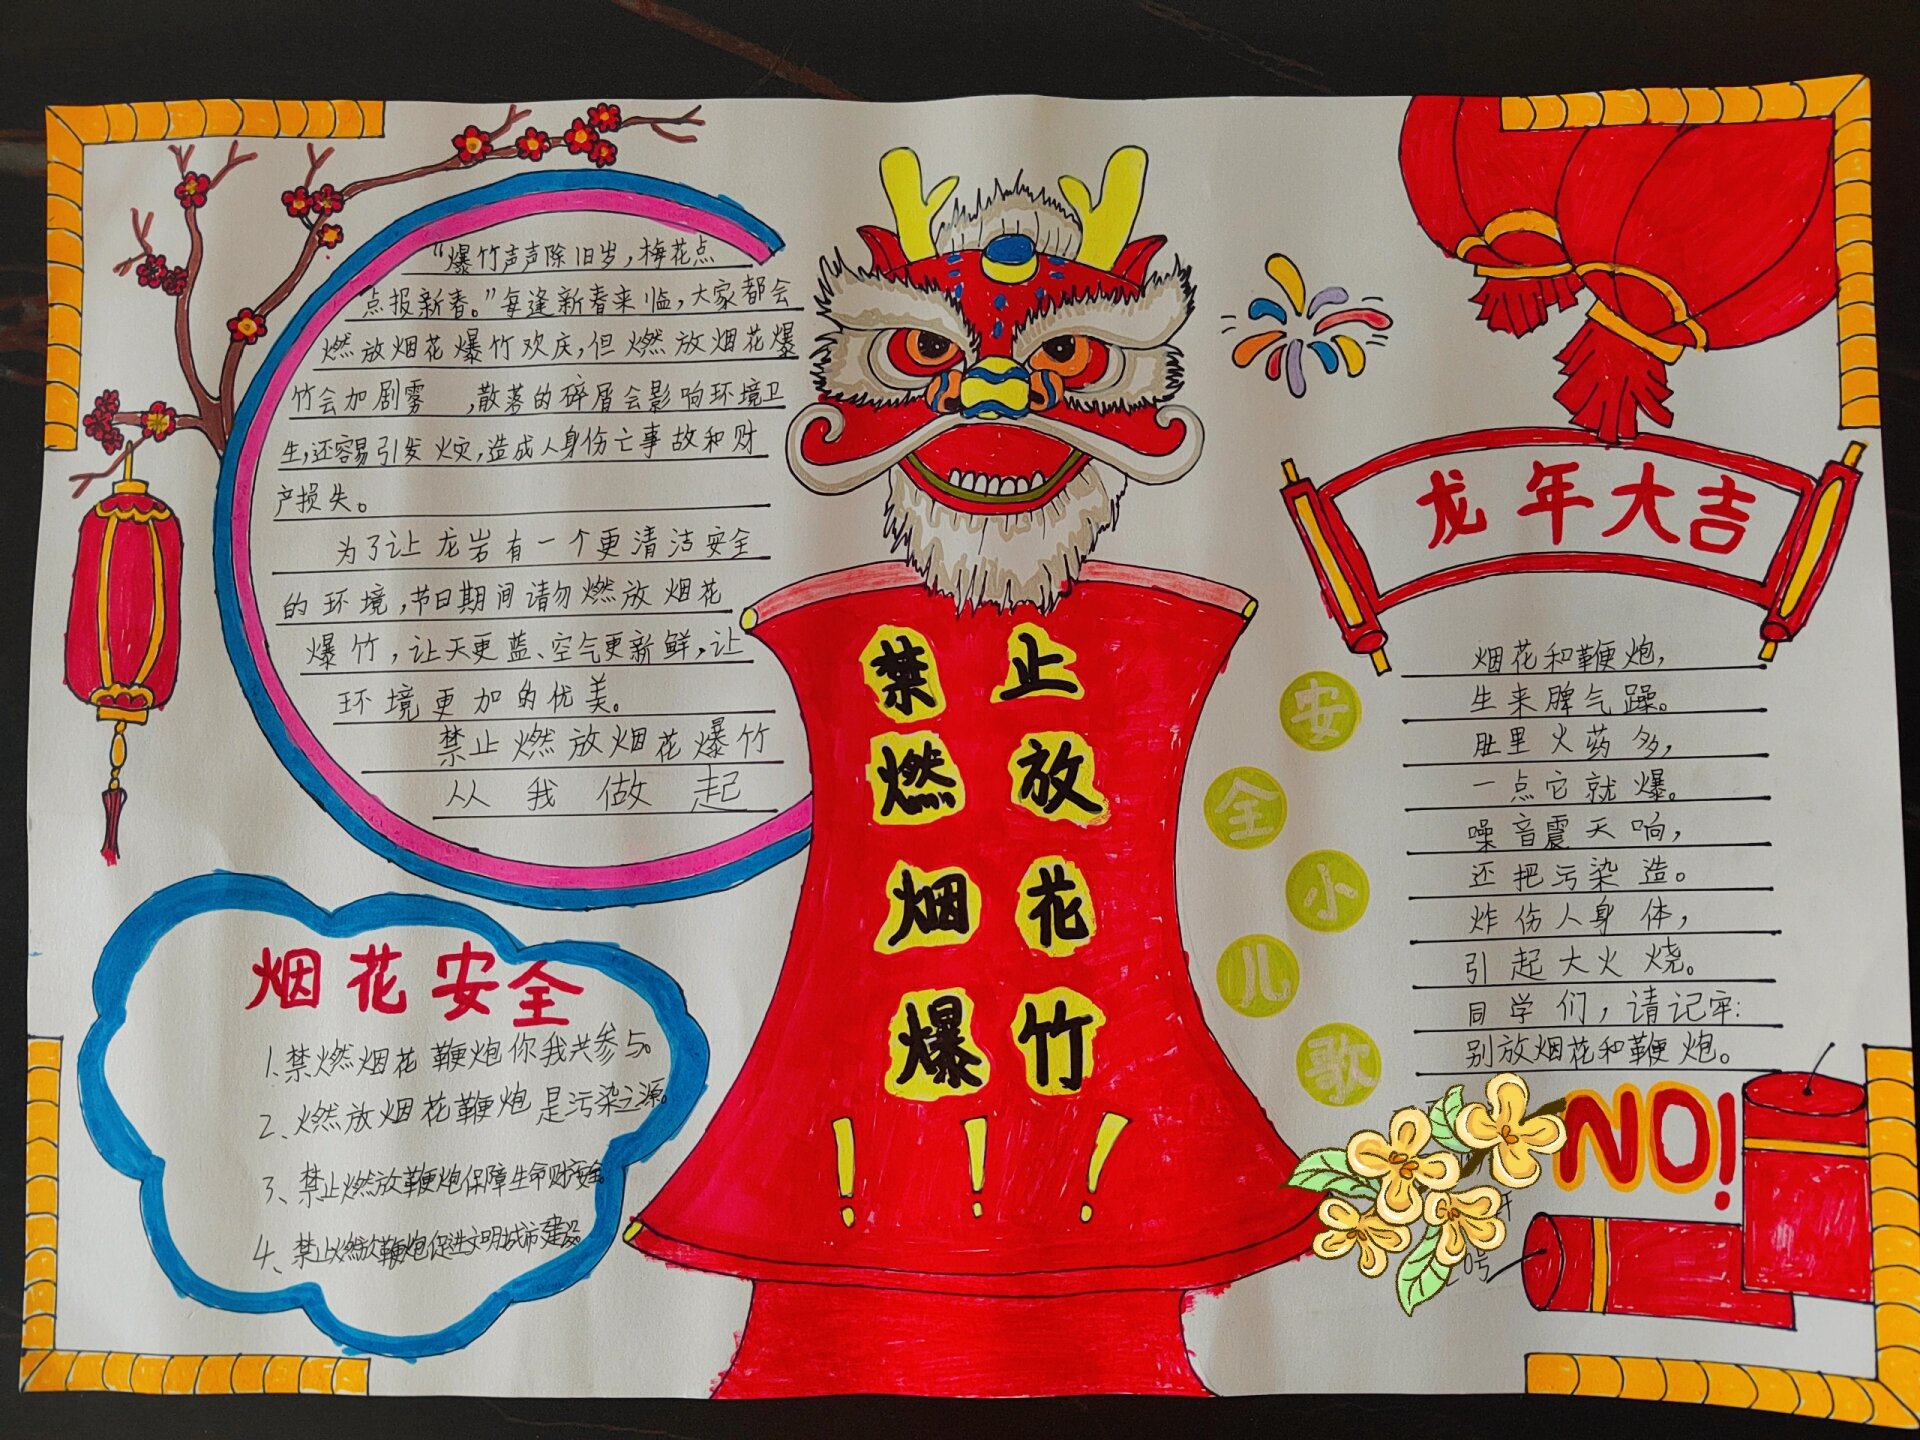 “爆竹声声除旧岁，梅花点
点报新春。”每逢新春来临，大家都会
燃放烟花爆竹欢庆，但燃放烟花爆
竹会加剧雾 ，散落的碎屑会影响环境卫
生，还容易引发火灾，造成人身伤亡事故和财
产损失。
为了让龙岩有一个更清洁安全
的环境，节日期间请勿燃放烟花
爆竹，让天更蓝、空气更新鲜，让
环境更加的优美。
禁止燃放烟花爆竹
从我做起
烟花安全
1.禁燃烟花鞭炮你我共参与。
2、燃放烟花鞭炮是污染之源。
3、禁止燃放鞭炮保障生命财产安全。
4、禁止燃放鞭炮促进文明城市建设。
禁止
燃放
烟花
爆竹
!!!
龙年大吉
安全小儿歌
烟花和鞭炮，
生来脾气躁。
肚里火药多，
一点它就爆。
噪音震天响，
还把污染造。
炸伤人身体，
引起大火烧。
同学们，请记牢：
别放烟花和鞭炮。
NO!
号